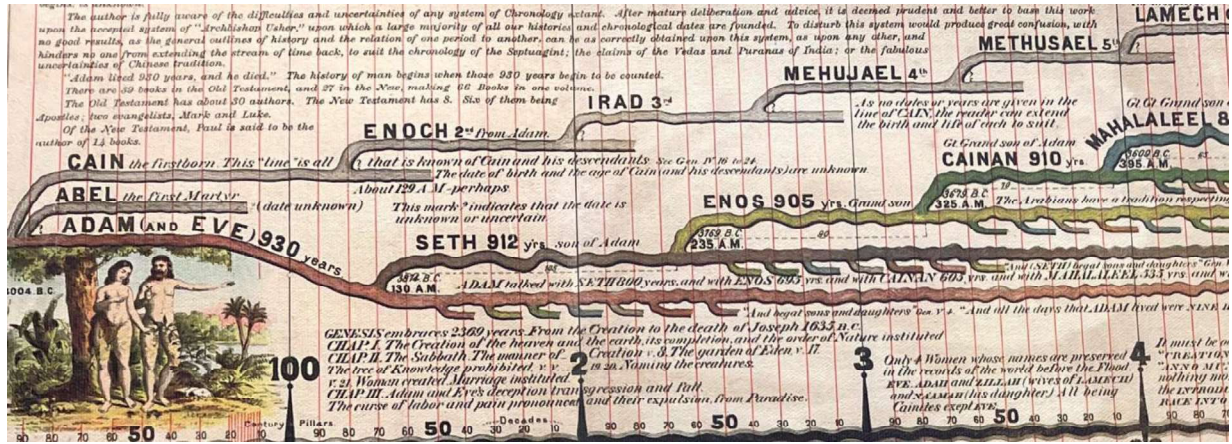 The author is fully aware of the difficulties and uncertainties of any system of Chronology extant. After mature deliberation and advice, it is deemed prudent and better to base this work
upon the accepted system of "Archbishop Usher," upon which a large majority of all our historical and chronological dates are founded. To disturb this system would produce great confusion, with
no good results, as the general outlines of history and the relation of one period to another, can be as correctly obtained upon this system, as upon any other, and
hinders no one from extending the stream of time back, to suit the chronology of the Septuagint; the claims of the Vedas and Puranas of India; or the fabulous
uncertainties of Chinese tradition.
"Adam lived 930 years, and he died." The history of man begins when those 930 years begin to be counted.
There are 39 books in the Old Testament, and 27 in the New, making 66 Books in one volume.
The Old Testament has about 30 authors. The New Testament has 8. Six of them being
Apostles; two evangelists, Mark and Luke.
Of the New Testament, Paul is said to be the
author of 14 books.
LAMECH
METHUSAEL 5th
MEHUJAEL 4th
IRAD 3rd
ENOCH 2nd from Adam.
As no dates or years are given in the
line of CAIN, the reader can extend
the birth and life of each to suit.
Gt Gt Grand son
MAHALALEEL 8
3609 B.C.
395 A.M.
65
CAIN the firstborn. This "line" is all that is known of Cain and his descendants. See Gen. IV 16 to 24.
The date of birth and the age of Cain and his descendants) are unknown
Gt Grand son of Adam
CAINAN 910 yrs.
3679 B.C.
325 A.M.
70
The Arabians have a tradition respecting
ABEL the first Martyr
(date unknown)
About 129 A.M-perhaps.
This mark * indicates that the date is
unknown or uncertain
ENOS 905 yrs. Grand son
3769 B.C.
235 A.M.
90
ADAM (AND EVE) 930 years
SETH 912 yrs. son of Adam
3874 B.C.
130 A.M.
105
"And (SETH) begat sons and daughters" Gen. V
ADAM talked with SETH 800 years, and with ENOS 695 yrs. and with CAINAN 605 yrs. and with MAHALALEEL 535 yrs. and w
4004 B.C.
"And begat sons and daughters" Gen. V 4. "And all the days that ADAM lived were NINE
GENESIS embraces 2369 years. From the Creation to the death of Joseph 1635 B.C.
CHAP. I. The Creation of the heaven and the earth, its completion, and the order of Nature instituted
CHAP. II. The Sabbath. The manner of Creation v. 8. The garden of Eden, v. 17.
The tree of Knowledge prohibited, v. v. 19 20. Naming the creatures.
v. 21. Woman created Marriage instituted.
CHAP. III. Adam and Eve's deception transgression and Fall.
The curse of labor and pain pronounced and their expulsion, from Paradise.
Only 4 Women whose names are preserved
in the records of the world before the Flood
EVE, ADAH and ZILLAH (wives of LAMECH)
and NAAMAH (his daughter) All being
Cainites exept EVE.
It must be
"CREATION
"ANNO MU
nothing mo
the INTROD
RACE INTO
100 2 3 4
Century Pillars. Decades
90 80 70 60 50 40 30 20 10 90 80 70 60 50 40 30 20 10 90 80 70 60 50 40 30 20 10 90 80 70 60 50 40 30 20 10 90 80